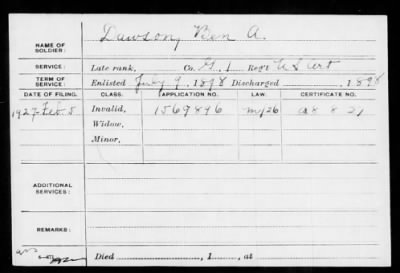 NAME OF SOLDIER: Dawson, Ben A.
SERVICE: Late rank, Co. G, 1 Reg't U S Art
TERM OF SERVICE: Enlisted July 9, 1898 Discharged , 1898
DATE OF FILING. CLASS. APPLICATION NO. LAW. CERTIFICATE NO.
1927-Feb. 5 Invalid, 1569896 my26 a8 8 21
Widow,
Minor,
ADDITIONAL SERVICES:
REMARKS:
Died , 1 , at